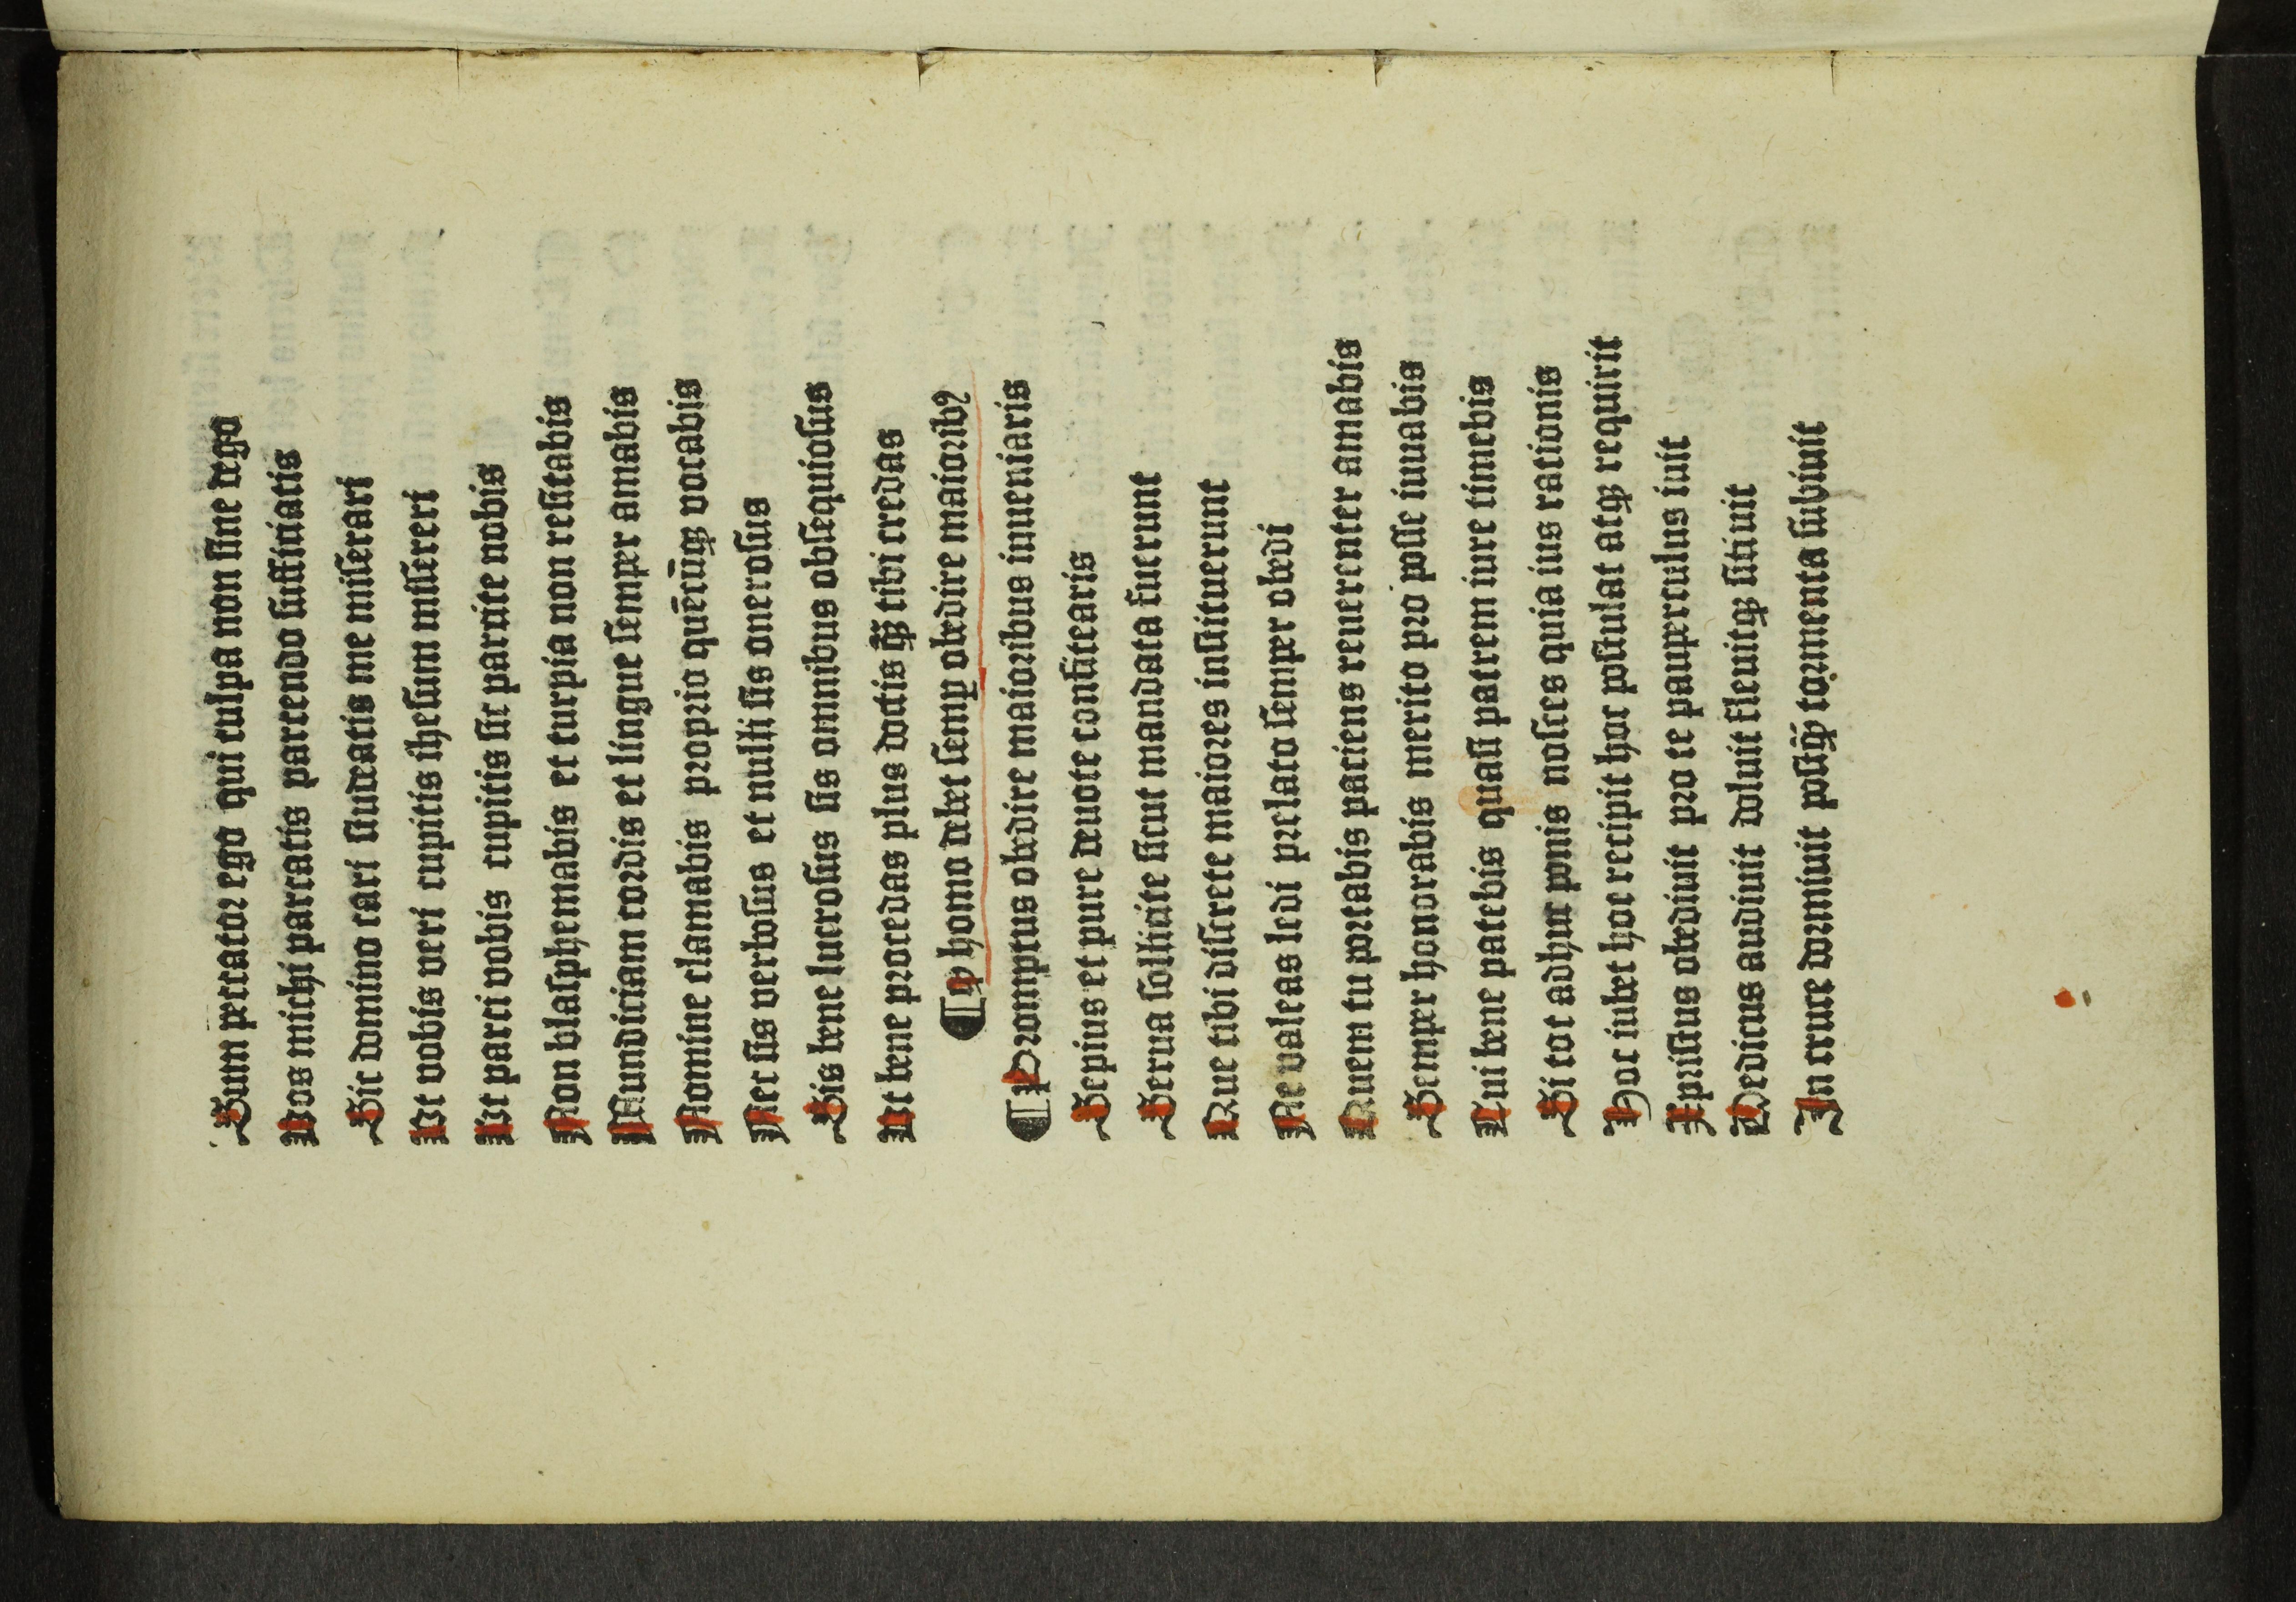 Sum peccator ego qui culpa non sine dego
Vos michi parcatis parcendo sufficiatis
Sic domino cari studeatis me miserari
Vt vobis veri cupitis ihesum misereri
Vt parci vobis cupitis sic parcite nobis
Non blasphemabis et turpia non resitabis
Mundiciam cordis et lingue semper amabis
Nomine clamabis proprio quēcūqꝫ vocabis
Nec sis verbosus et nulli sis onerosus
Sis bene lucrosus sis omnibus obsequiosus
Vt bene procedas plus doctis qꝫ̄ tibi credas
¶ Qꝙ homo debet semꝑ obedire maioribꝰ
¶ Promptus obedire maioribus inueniaris
Sepius et pure deuote confitearis
Serua sollicite sicut mandata fuerunt
Que tibi discrete maiores instituerunt
Ne valeas ledi prelato semper obedi
Quem tu portabis paciens reuerenter amabis
Semper honorabis merito pro posse iuuabis
Cui bene patebis quasi patrem iure timebis
Si tot adhuc ponis nosces quia ius rationis
Hoc iubet hoc recipit hoc postulat atqꝫ requirit
Xpristus obediuit pro te pauperculus iuit
Medicus audiuit doluit fleuitqꝫ sitiuit
In cruce dormiuit postqꝫ̄ tormenta subiuit